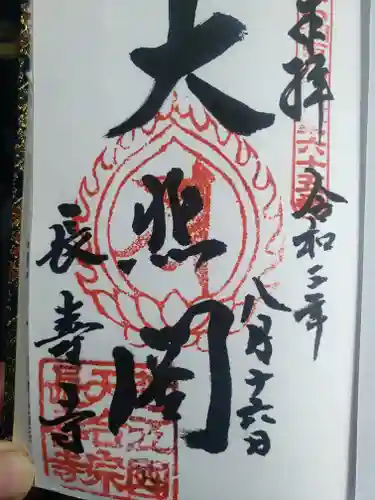 奉拝
令和二年
八月十六日
大悲閣
長寿寺
天台宗